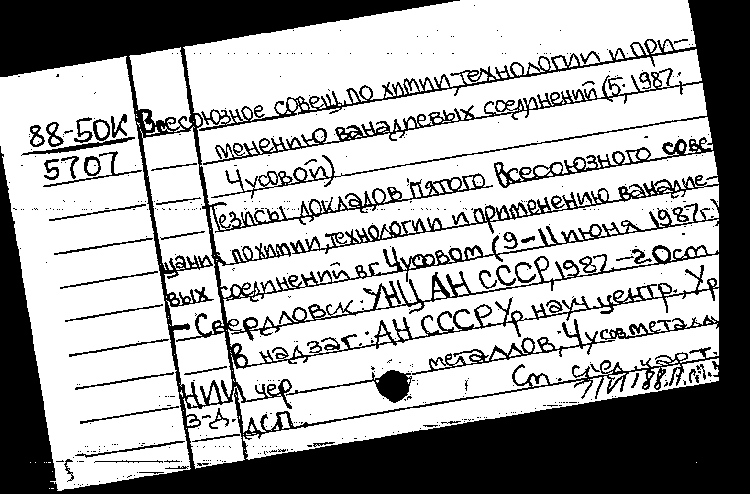 88-5ДК Всесоюзное совещ. по химии, технологии и при-
5707 менению ванадиевых соединений (5; 1987;
Чусовой)
Тезисы докладов Пятого Всесоюзного сове-
щания по химии, технологии и применению ванадие-
вых соединений в г. Чусовом (9-11 июня 1987г.)
- Свердловск: УНЦ АН СССР, 1987. - 2.0 см.
В надзаг.: АН СССР Ур науч центр., Ур
НИИ чер. металлов, Чусов металл.
з-д. См. след. карт.
ДСП.